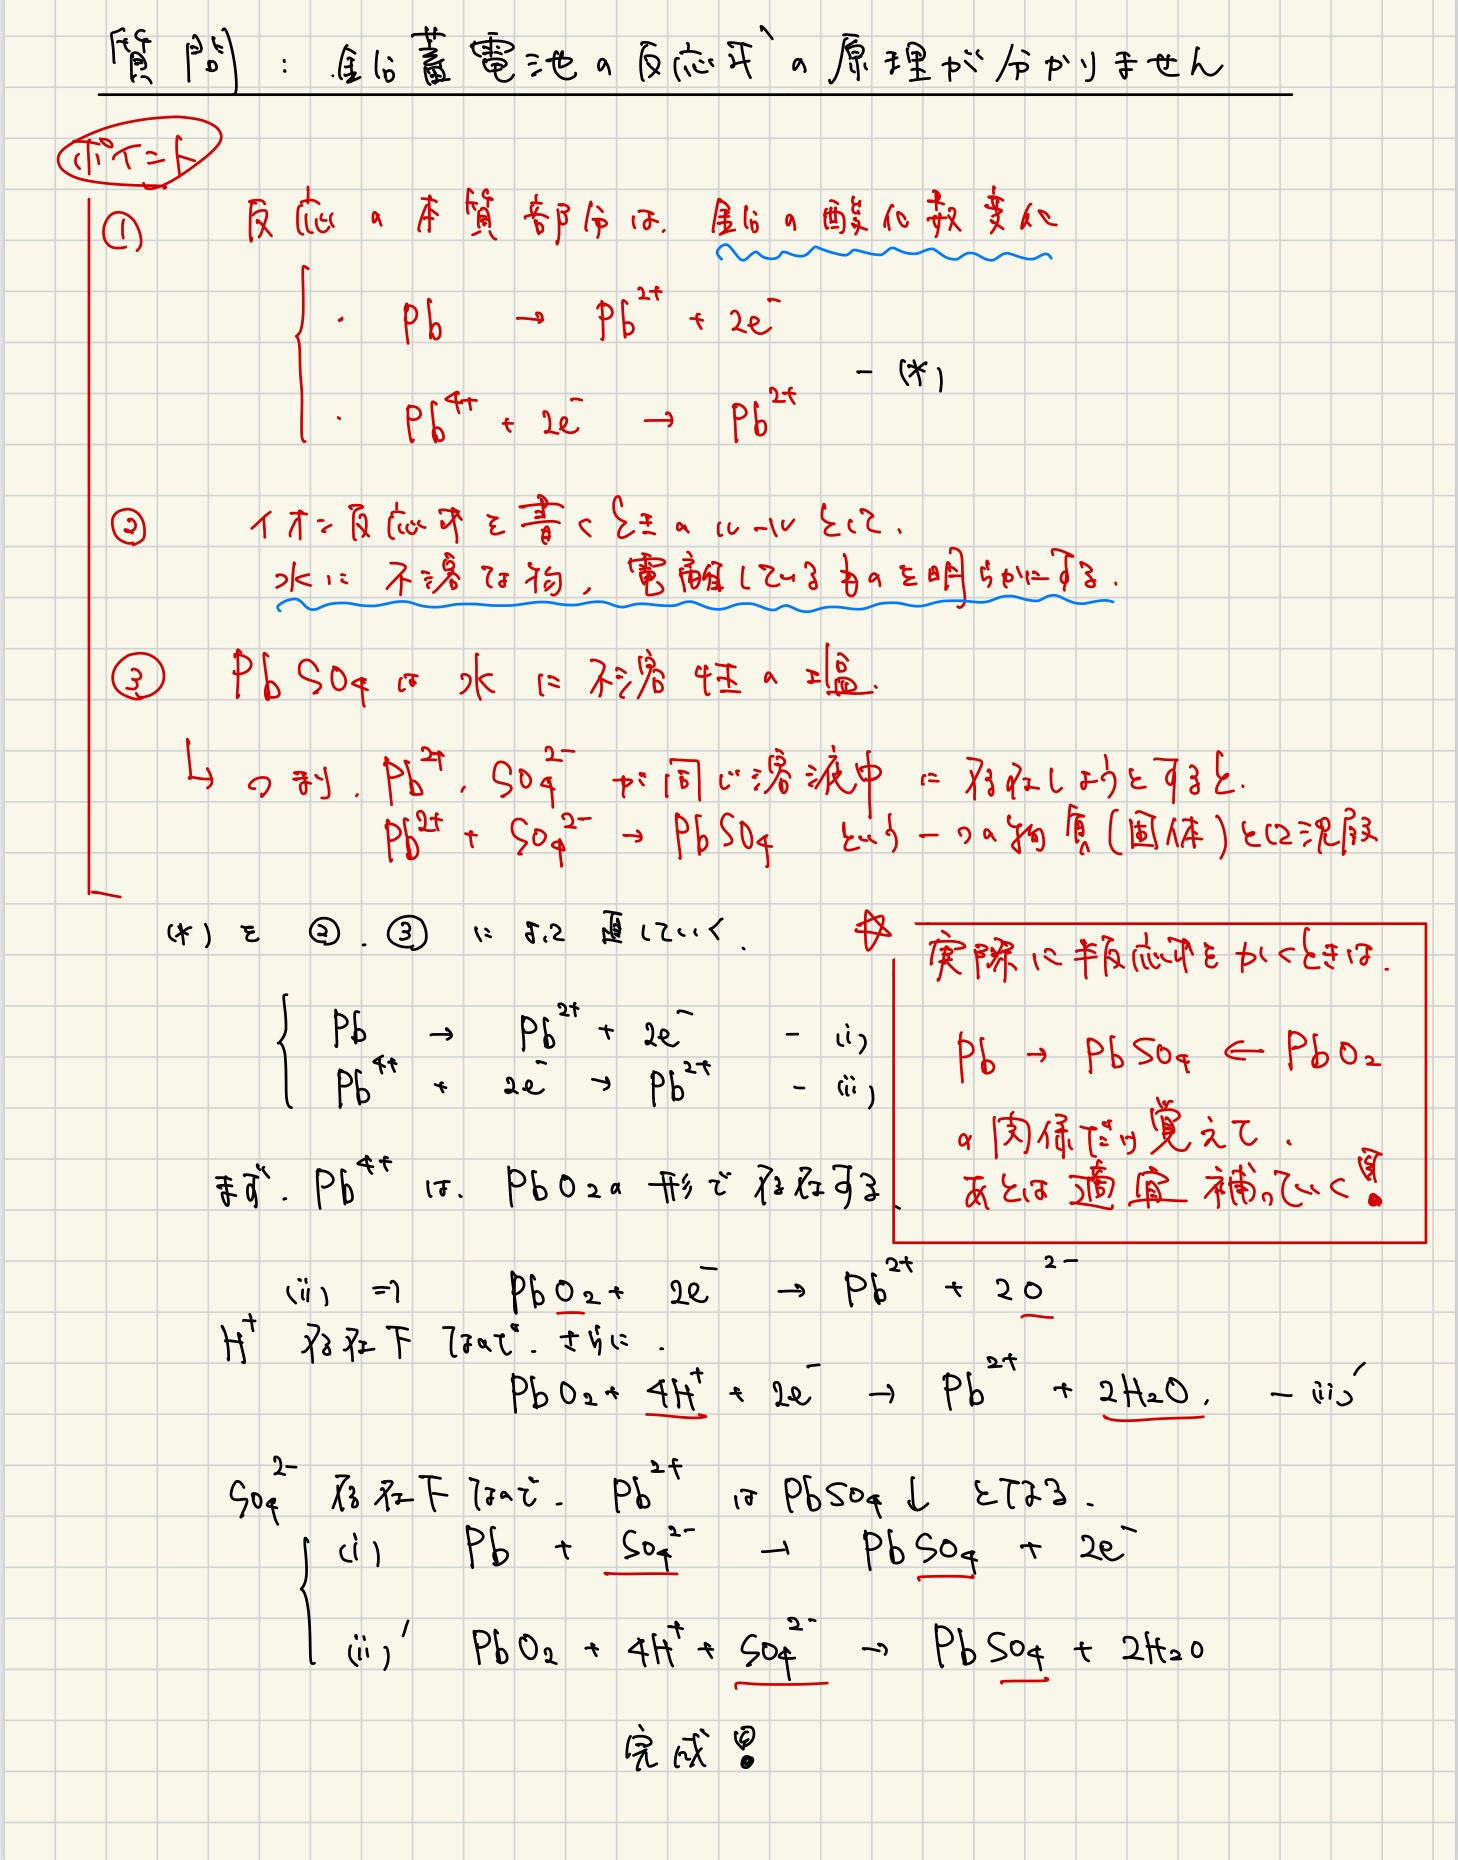 質問 : 鉛蓄電池の反応式の原理が分かりません
ポイント
① 反応の本質部分は、鉛の酸化数変化
・ Pb → Pb²⁺ + 2e⁻
- (*)
・ Pb⁴⁺ + 2e⁻ → Pb²⁺
② イオン反応式を書くときのルールとして、
水に不溶な物、電離しているものを明らかにする.
③ PbSO₄は水に不溶性の塩.
↳ つまり、Pb²⁺, SO₄²⁻ が同じ溶液中に存在しようとすると、
Pb²⁺ + SO₄²⁻ → PbSO₄ という一つの物質(固体)として沈殿
(*) を ②、③ によって直していく.
Pb → Pb²⁺ + 2e⁻ - (i)
Pb⁴⁺ + 2e⁻ → Pb²⁺ - (ii)
☆ 実際に半反応式をかくときは、
Pb → PbSO₄ ← PbO₂
の関係だけ覚えて、
あとは適宜補っていく!
まず、Pb⁴⁺ は、PbO₂の形で存在する.
(ii) ⇒ PbO₂ + 2e⁻ → Pb²⁺ + 2O²⁻
H⁺ 存在下なので、さらに、
PbO₂ + 4H⁺ + 2e⁻ → Pb²⁺ + 2H₂O. - (ii)'
SO₄²⁻ 存在下なので、Pb²⁺ は PbSO₄↓ となる.
(i) Pb + SO₄²⁻ → PbSO₄ + 2e⁻
(ii)' PbO₂ + 4H⁺ + SO₄²⁻ → PbSO₄ + 2H₂O
完成!